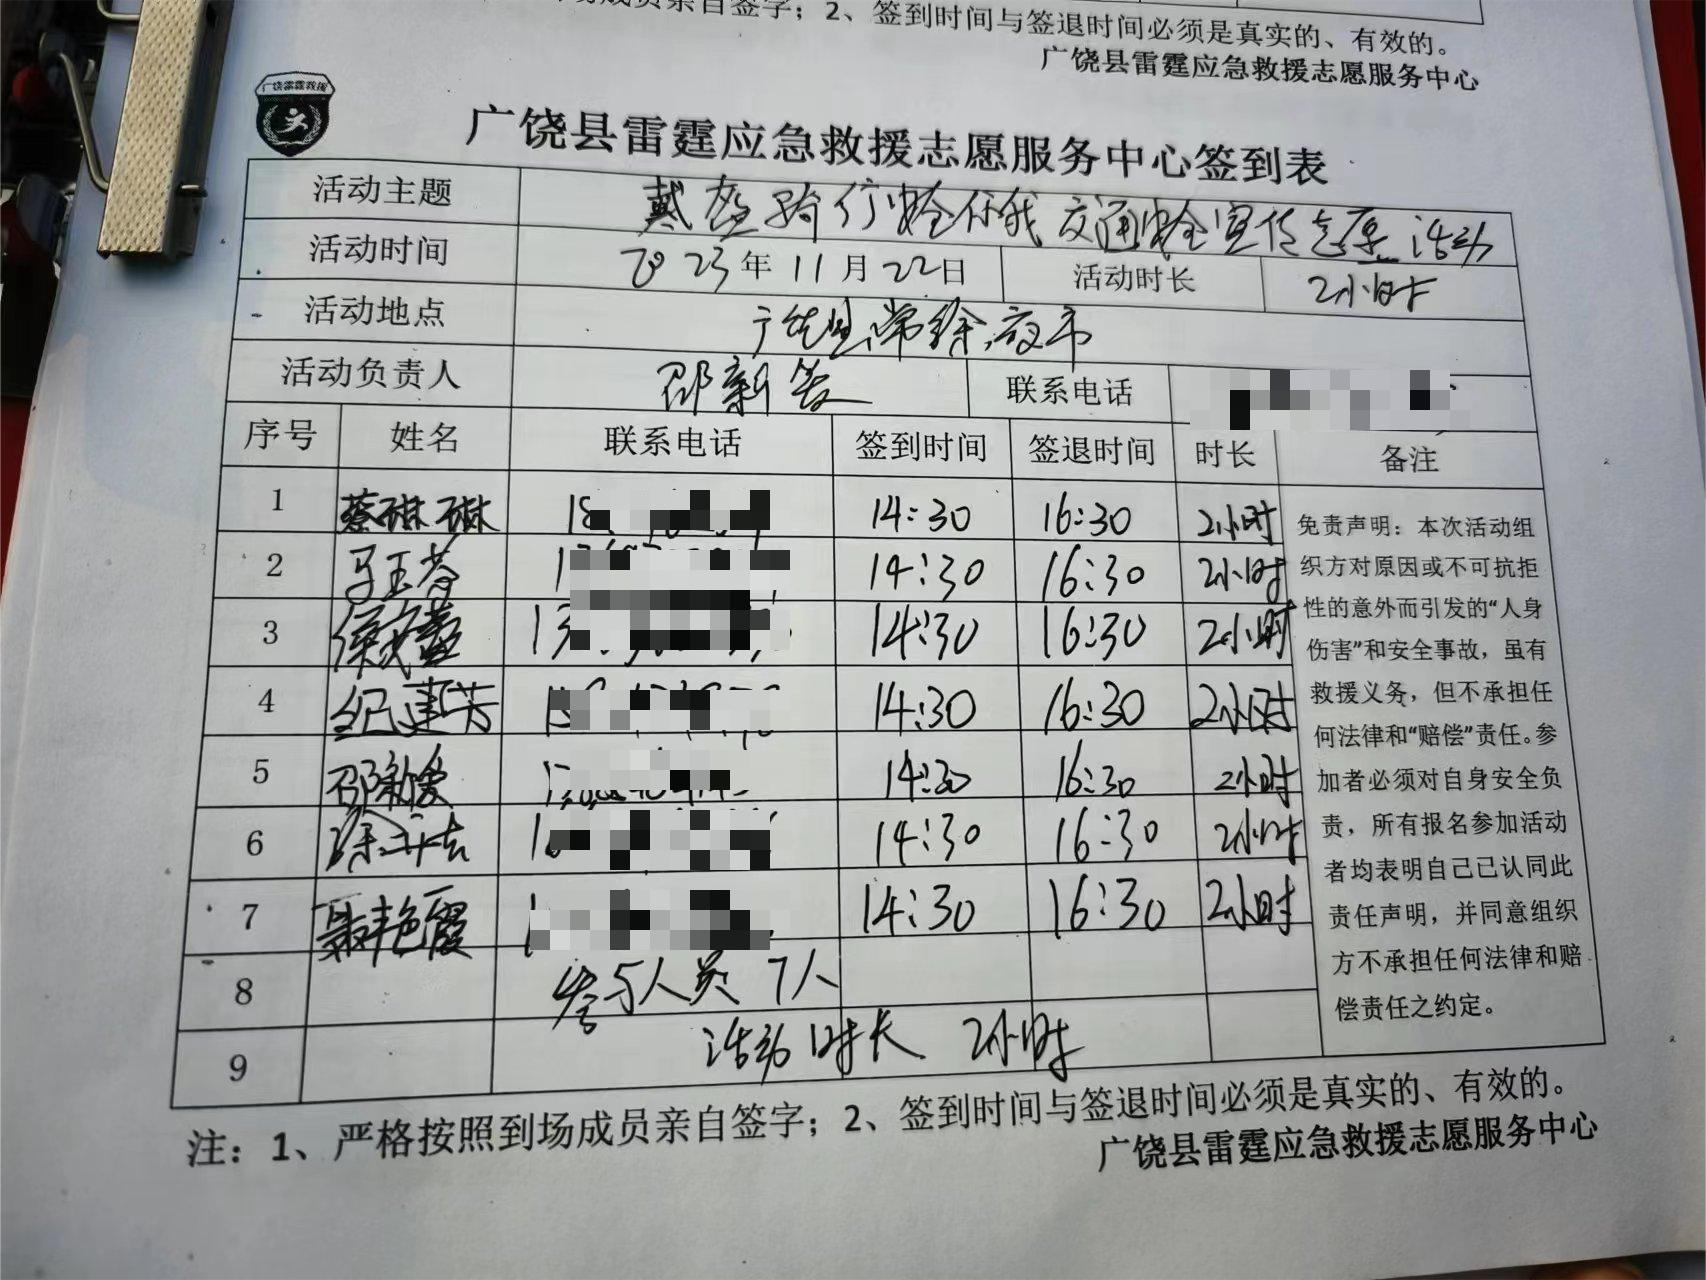 场成员亲自签字；2、签到时间与签退时间必须是真实的、有效的。
广饶县雷霆应急救援志愿服务中心
广饶雷霆救援
广饶县雷霆应急救援志愿服务中心签到表
活动主题 戴盔骑行安全你我 交通安全宣传志愿活动
活动时间 2023年11月22日 活动时长 2小时
活动地点 广饶县常徐夜市
活动负责人 邵新 联系电话
序号 姓名 联系电话 签到时间 签退时间 时长 备注
1 蔡琳琳 18 14:30 16:30 2小时
2 马玉芬 1 14:30 16:30 2小时
3 13 14:30 16:30 2小时
4 纪建芳 1 14:30 16:30 2小时
5 邵新 1 14:30 16:30 2小时
6 1 14:30 16:30 2小时
7 聂艳霞 1 14:30 16:30 2小时
8 参与人员 7人
9 活动时长 2小时
免责声明：本次活动组
织方对原因或不可抗拒
性的意外而引发的“人身
伤害”和安全事故，虽有
救援义务，但不承担任
何法律和“赔偿”责任。参
加者必须对自身安全负
责，所有报名参加活动
者均表明自己已认同此
责任声明，并同意组织
方不承担任何法律和赔
偿责任之约定。
注：1、严格按照到场成员亲自签字；2、签到时间与签退时间必须是真实的、有效的。
广饶县雷霆应急救援志愿服务中心